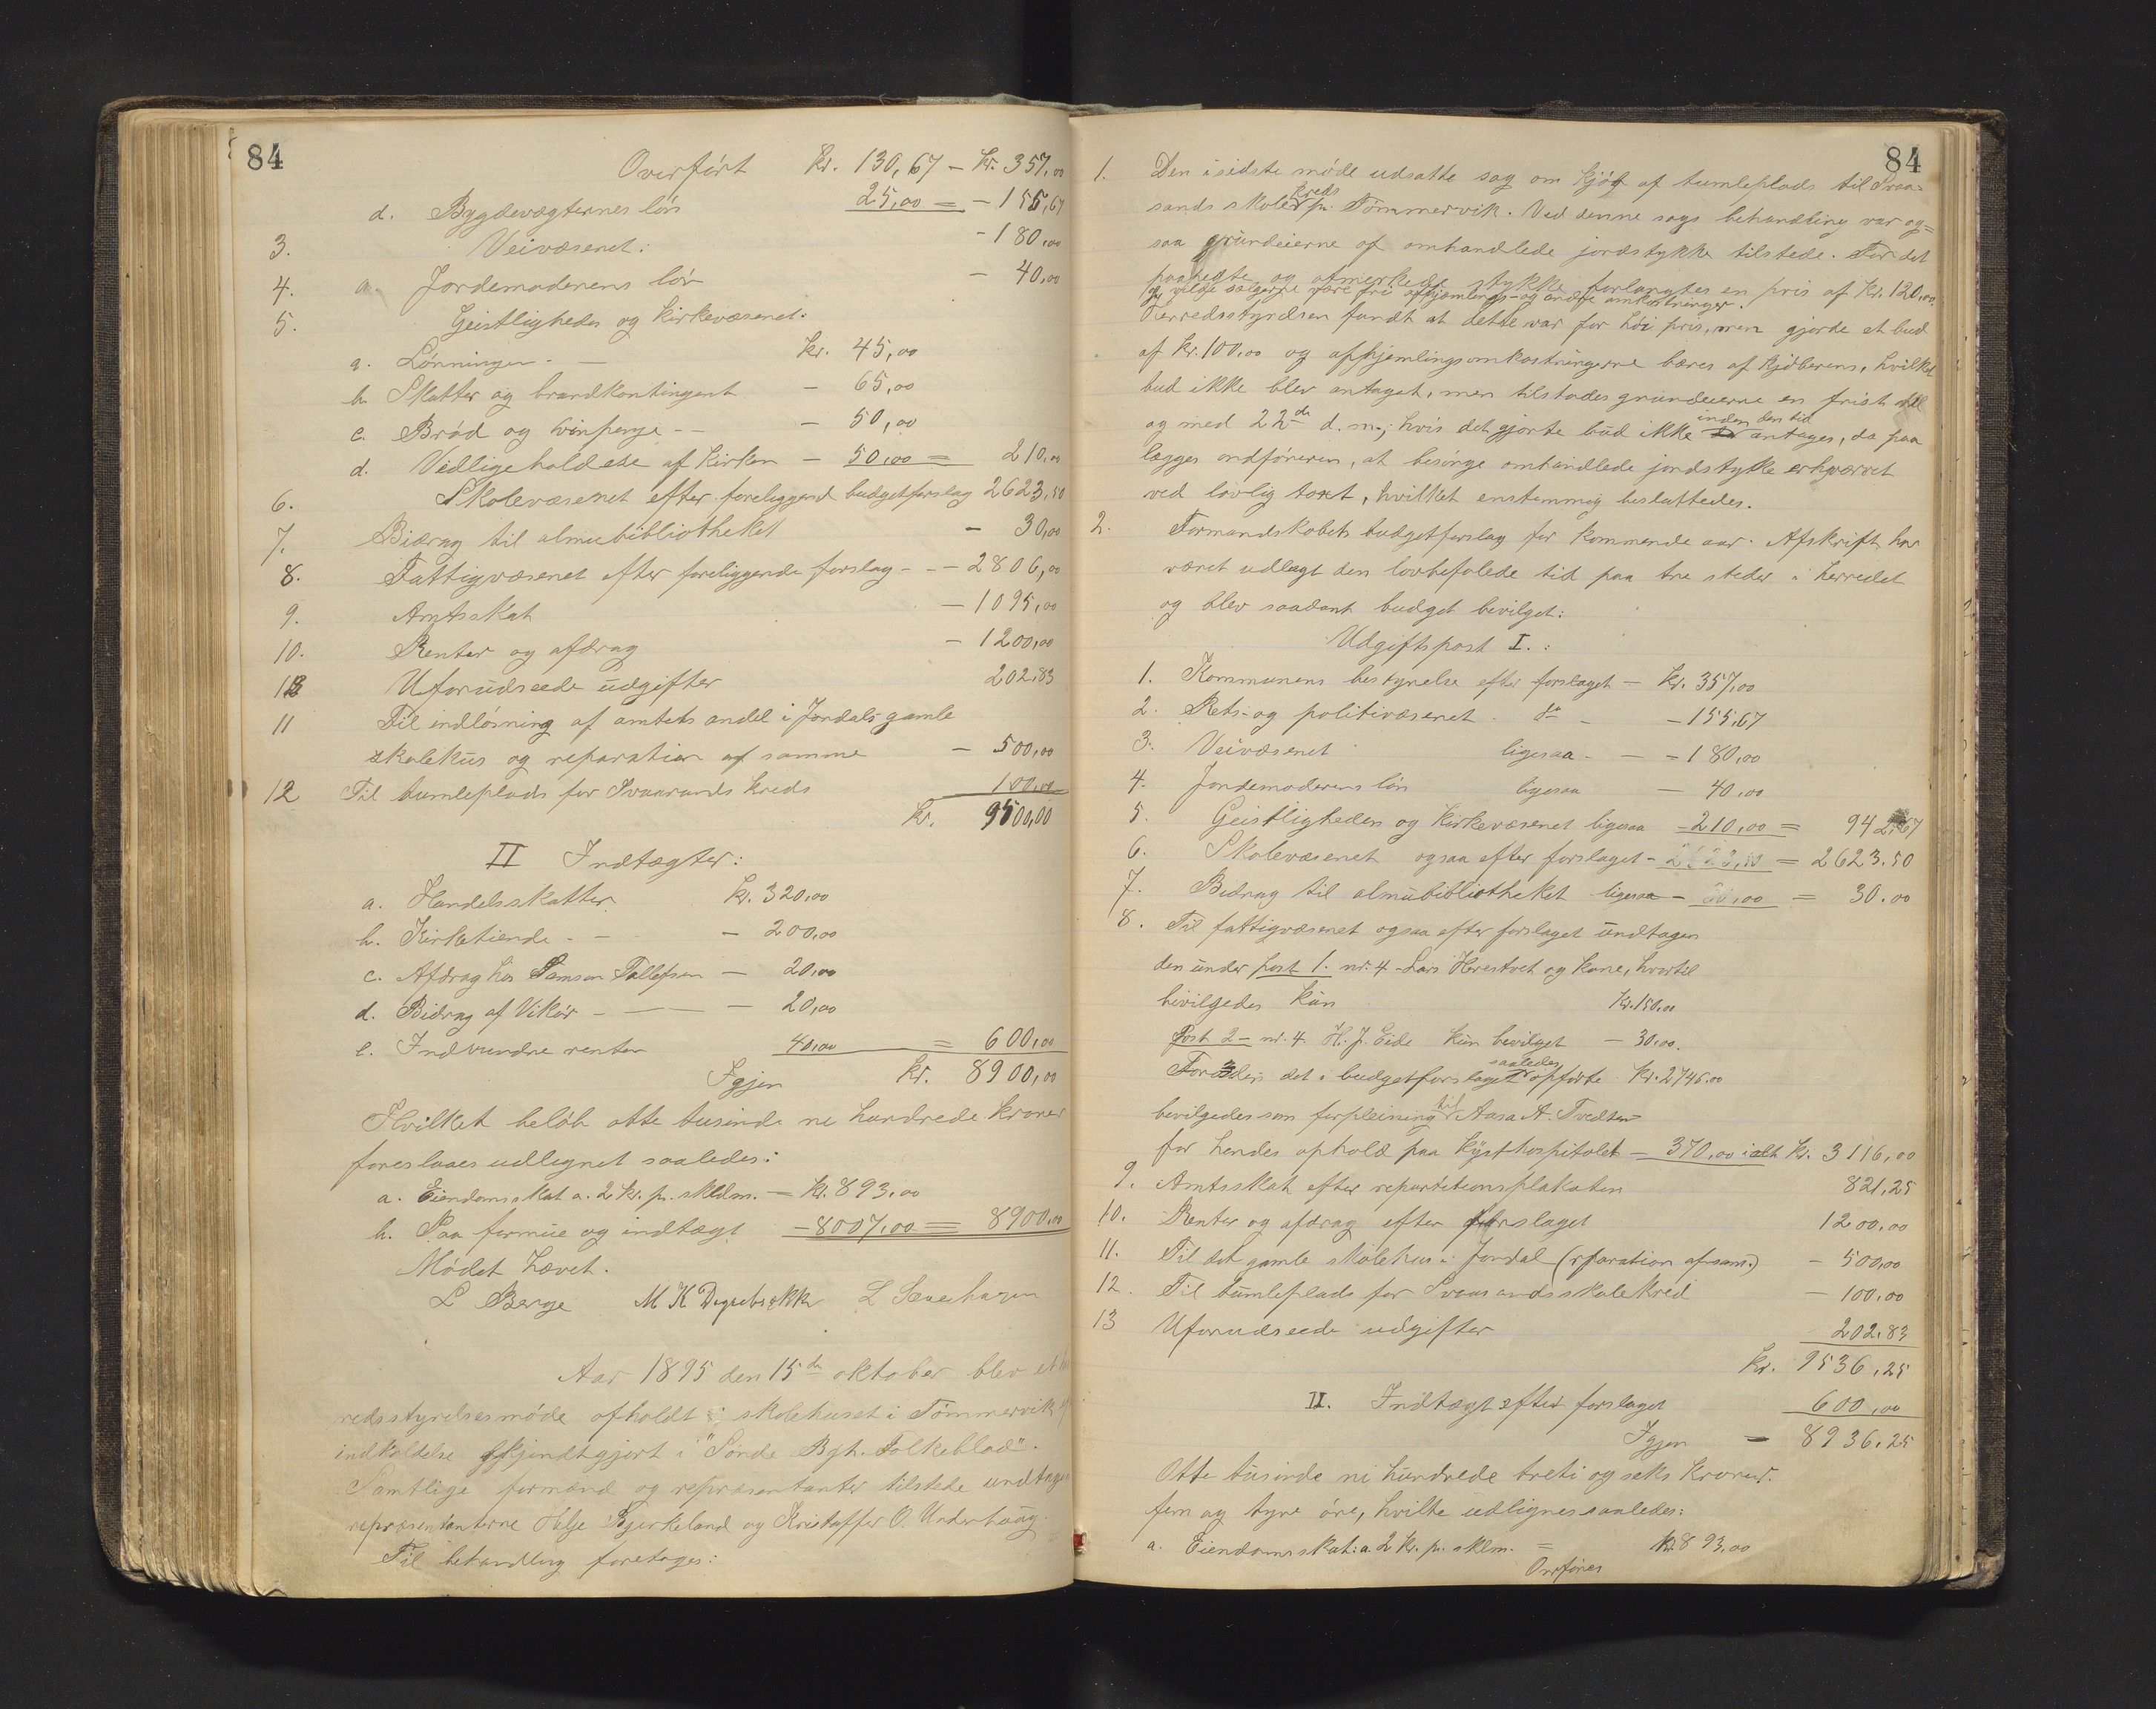 84
Overført Kr. 130,67 – Kr. 357,00
d. Bygdevægternes løn 25,00 = – 155,67
3. Veivæsenet: – 180,00
4. a. Jordemoderens løn – 40,00
5. Geistligheden og kirkevæsenet:
a. Lønninger – Kr. 45,00
b. Skatter og brandkontingent – 65,00
c. Brød og vinpenge – – 50,00
d. Vedligeholdelse af kirken – 50,00 = 210,00
6. Skolevæsenet efter foreliggend budgetforslag 2623,50
7. Bidrag til almuebibliotheket – 30,00
8. Fattigvæsenet efter foreliggende forslag – – 2806,00
9. Amtsskat – 1095,00
10. Renter og afdrag – 1200,00
13 Uforudseede udgifter 202,83
11 Til indløsning af amtets andel i Jondals gamle
skolehus og reparation af samme – 500,00
12 Til tumleplads for Svaasands kreds 100,00
Kr. 9500,00
II Indtægter:
a. Handelsskatter Kr. 320,00
b. Kirketiende – – 200,00
c. Afdrag hos Samson Tollefsen – 20,00
d. Bidrag af Vikør – – – 20,00
e. Indvundne renter 40,00 = 600,00
Igjen Kr. 8900,00
Hvilket beløb otte tusinde ni hundrede kroner
foreslaaes udlignet saaledes:
a. Eiendomsskat a. 2 kr. p. skldm. – Kr. 893,00
b. Paa formue og indtægt – 8007,00 = 8900,00
Mødet hævet.
L Berge M K Digrebrækk L Samehagen
Aar 1895 den 15de oktober blev et
redsstyrelsesmøde afholdt i skolehuset i Tømmervik
indkaldelse kjendtgjort i "Søndr Bgh. Folkeblad".
Samtlige formænd og repræsentanter tilstede undtagen
repræsentanterne Helje Bjerkeland og Kristoffer O. Underhaug.
Til behandling foretages:
84
1. Den i sidste møde udsatte sag om kjøb af tumleplads til Svaa-
sands skolekreds pr. Tømmervik. Ved denne sags behandling var og=
saa grundeierne af omhandlede jordstykke tilstede. For det
paapegte og afmerkede stykke forlangtes en pris af Kr. 120,00
og vilde sælgerne være fri afhjemlings- og andre omkostninger.
Herredsstyrelsen fandt at dette var for høi pris, men gjorde et bud
af Kr. 100,00 og afhjemlingsomkostningerne bæres af kjøberens, hvilket
bud ikke blev antaget, men tilstodes grundeierne en frist til
og med 22de d. m.; hvis det gjorte bud ikke inden den tid antages, da paa
lægges ordføreren, at besørge omhandlede jordstykke erhvervet
ved lovlig taxt, hvilket enstemmig besluttedes.
2. Formandskabets budgetforslag for kommende aar. Afskrift har
været udlagt den lovbefalede tid paa tre steder i herredet
og blev saadant budget bevilget:
Udgiftspost I.:
1. Kommunens bestyrelse efter forslaget – Kr. 357,00
2. Rets- og politivæsenet do – – 155,67
3. Veivæsenet ligesaa – – – 180,00
4. Jordemoderens løn ligesaa – 40,00
5. Geistligheden og kirkevæsenet ligesaa – 210,00 = 942,67
6. Skolevæsenet ogsaa efter forslaget – 2623,50 = 2623.50
7. Bidrag til almuebibliotheket ligesaa – 30,00 = 30.00
8. Til fattigvæsenet ogsaa efter forslaget undtagen
den under post 1. nr. 4 Lars Herestvet og kone, hvortil
bevilgedes kun Kr. 150.00
Post 2 – nr. 4 H. J. Eide kun bevilget – 30,00.
Foruden det i budgetforslaget saaledes opførte Kr. 2746.00
bevilgedes som forpleining til Aasa A. Tvedten
for hendes ophold paa kysthospitalet – 370,00 ialt Kr. 3116,00
9. Amtsskat efter repartitionsplakaten 821,25
10. Renter og afdrag efter forslaget 1200,00
11. Til det gamle skolehus i Jondal (rparation af sam.) – 500,00
12. Til tumleplads for Svaasands skolekred – 100,00
13 Uforudseede udgifter 202,83
Kr. 9536,25
II. Indtægt efter forslaget 600,00
Igjen – 8936,25
Otte tusinde ni hundrede treti og seks kroner.
fem og tyve øre, hvilke udlignes saaledes:
a. Eiendomsskat: a. 2 kr. p. sklm. = Kr. 893,00
Overføres